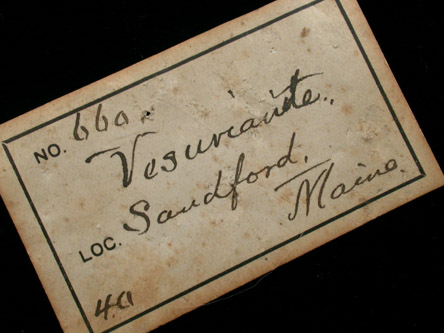 NO. 660.
Vesuvianite.
LOC. Sandford,
Maine.
40